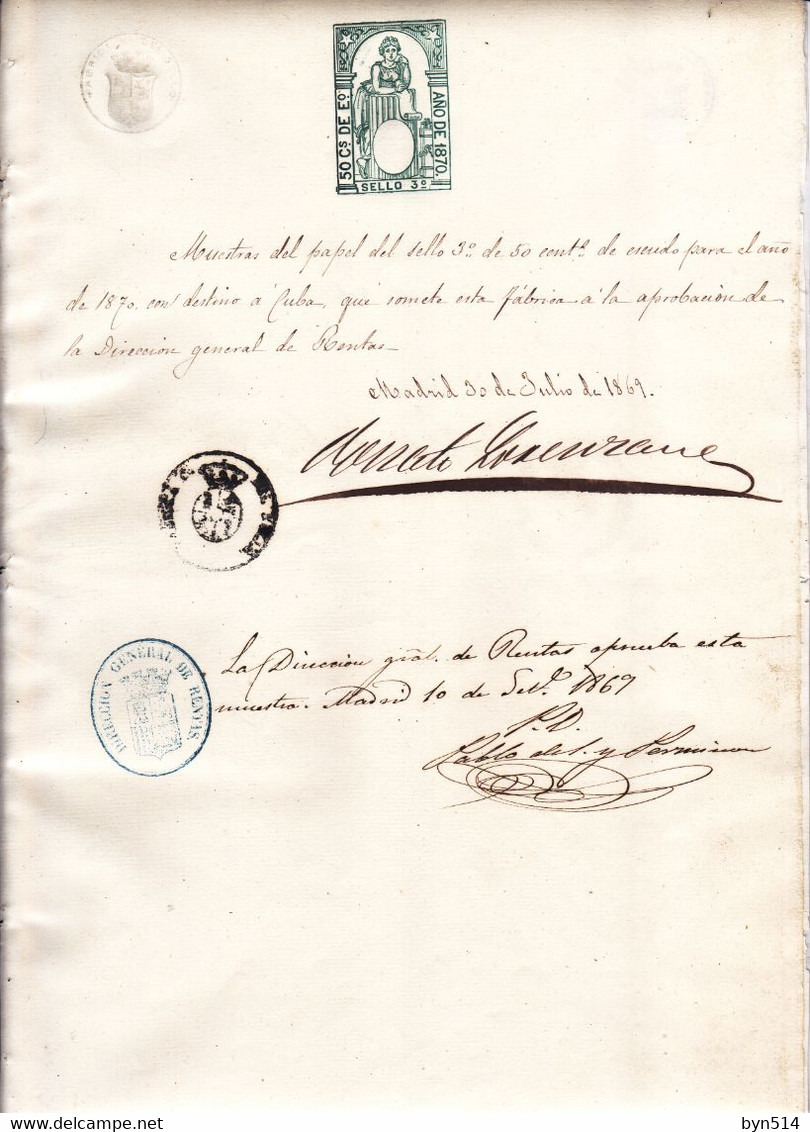 50 Cs. DE Eo.
AÑO DE 1870.
SELLO 3º
Muestras del papel del sello 3º de 50 centˢ de escudo para el año
de 1870, con destino á Cuba, que somete esta fábrica á la aprobacion de
la Direccion general de Rentas
Madrid 30 de Julio de 1869.
Lorenzana
La Direccion gral. de Rentas aprueba esta
muestra. Madrid 10 de Set.e 1869
P.D.
Pablo de S. y
DIRECCION GENERAL DE RENTAS.
byn514